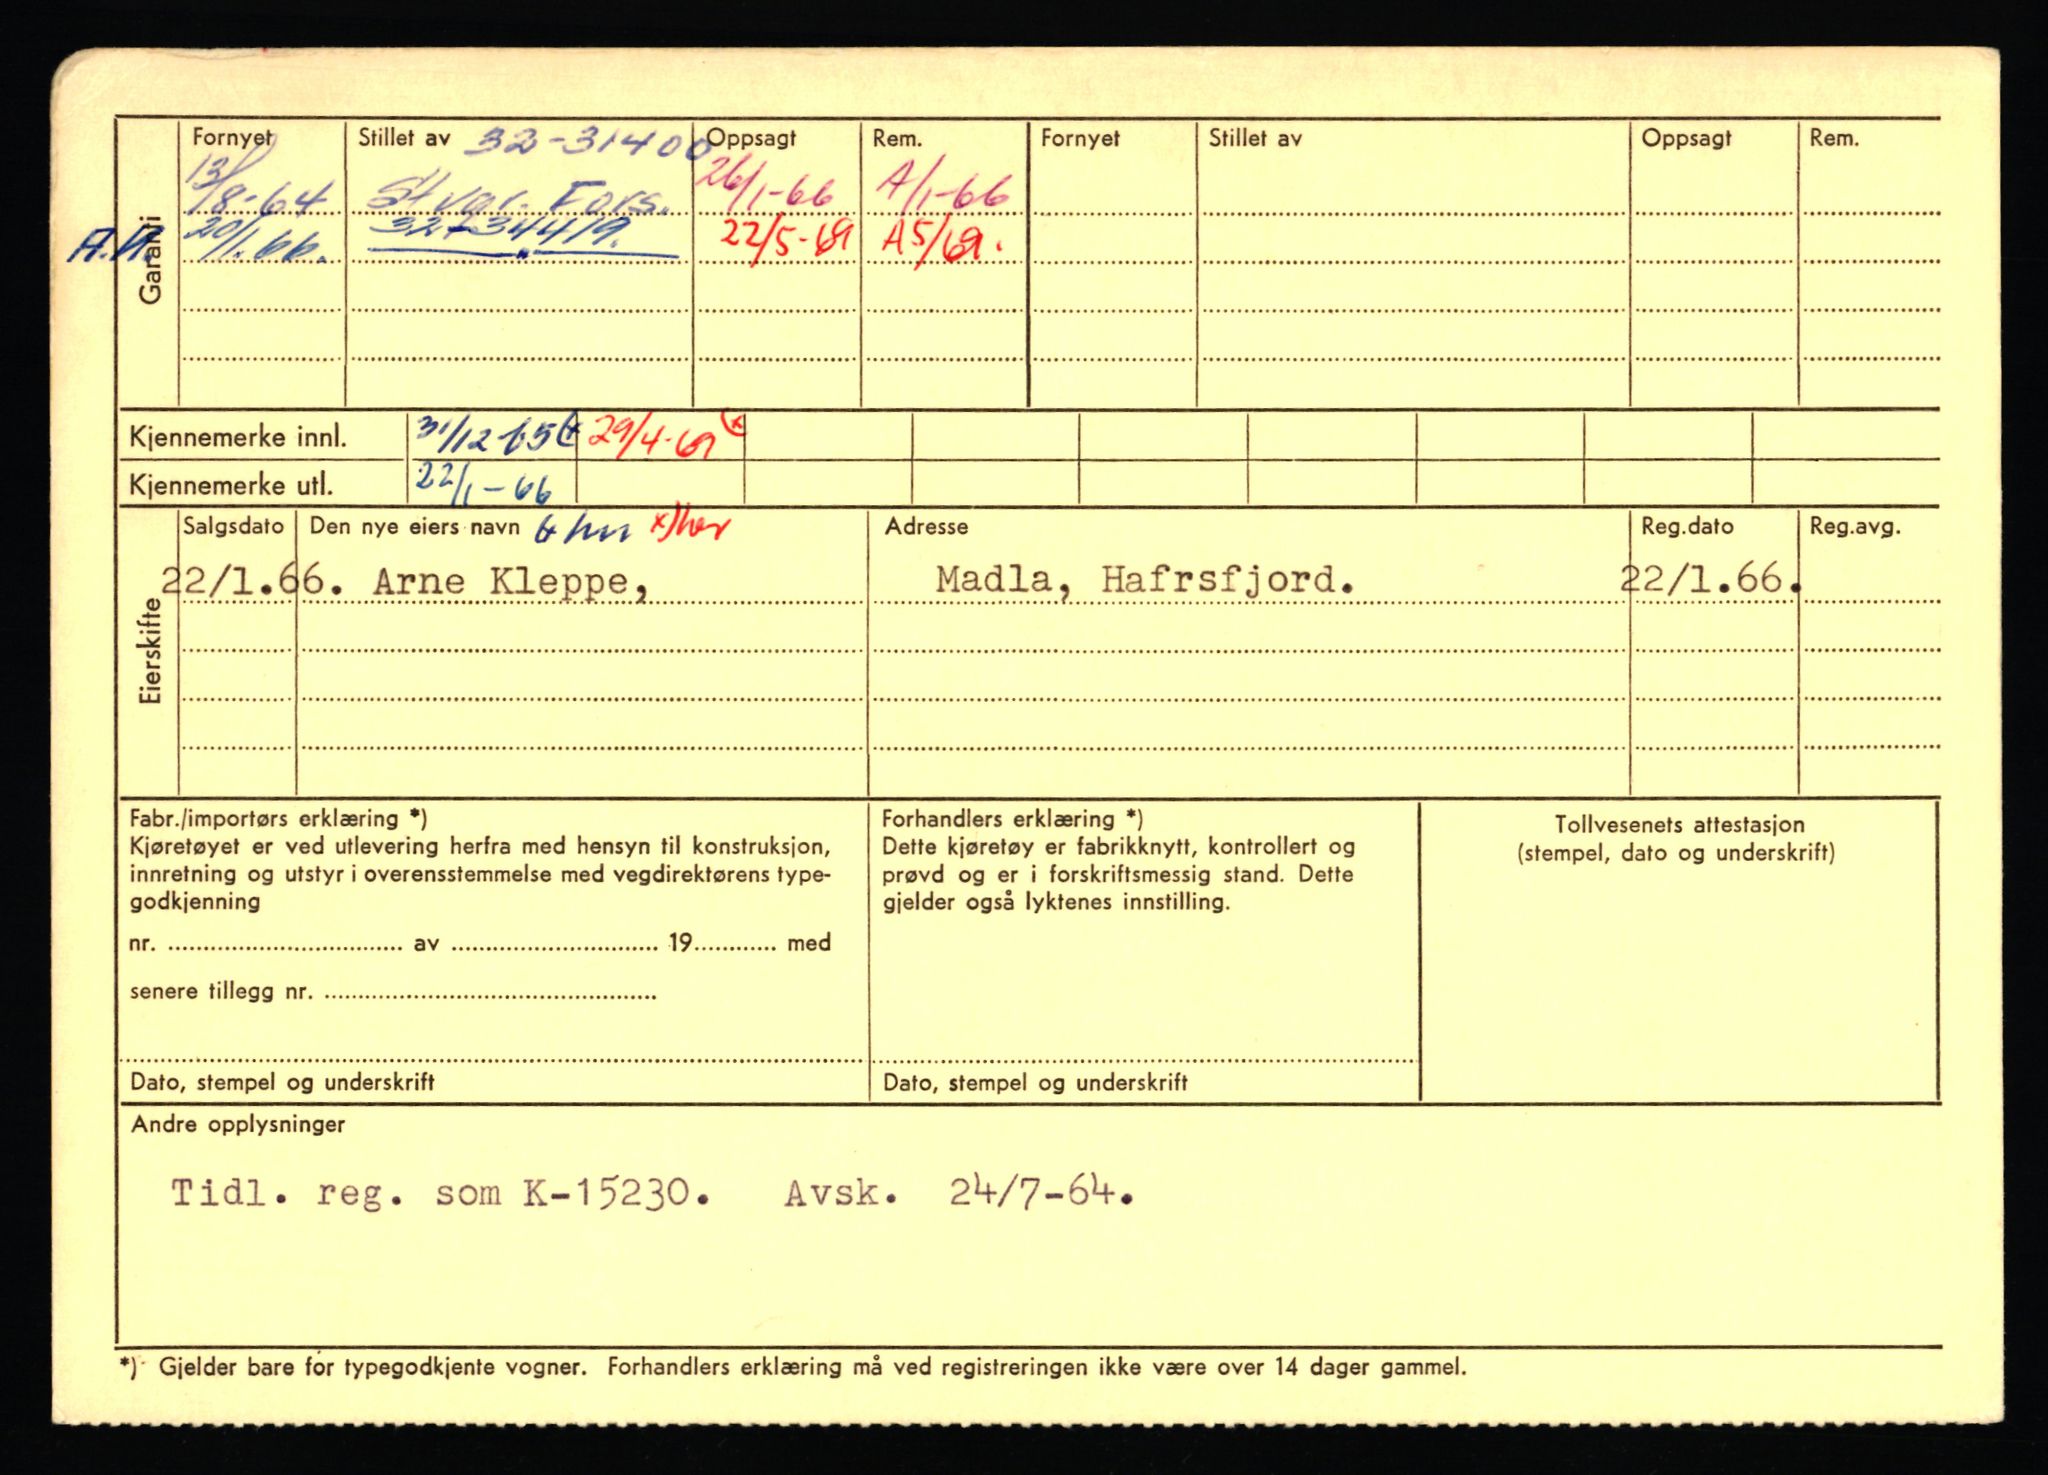 Garanti
Fornyet Stillet av 32-31400 Oppsagt Rem. Fornyet Stillet av Oppsagt Rem.
13/8-64 Stvgr. Fors. 26/1-66 A/1-66
20/1.66. 32-34419. 22/5-69 A5/69.
Kjennemerke innl. 31/12-65 29/4-69 x
Kjennemerke utl. 22/1-66
Eierskifte
Salgsdato Den nye eiers navn x) Adresse Reg.dato Reg.avg.
22/1.66. Arne Kleppe, Madla, Hafrsfjord. 22/1.66.
Fabr./importørs erklæring *)
Kjøretøyet er ved utlevering herfra med hensyn til konstruksjon,
innretning og utstyr i overensstemmelse med vegdirektørens type-
godkjenning
nr. .............................. av .............................. 19............ med
senere tillegg nr. ..............................
Dato, stempel og underskrift
Forhandlers erklæring *)
Dette kjøretøy er fabrikknytt, kontrollert og
prøvd og er i forskriftsmessig stand. Dette
gjelder også lyktenes innstilling.
Dato, stempel og underskrift
Tollvesenets attestasjon
(stempel, dato og underskrift)
Andre opplysninger
Tidl. reg. som K-15230. Avsk. 24/7-64.
*) Gjelder bare for typegodkjente vogner. Forhandlers erklæring må ved registreringen ikke være over 14 dager gammel.